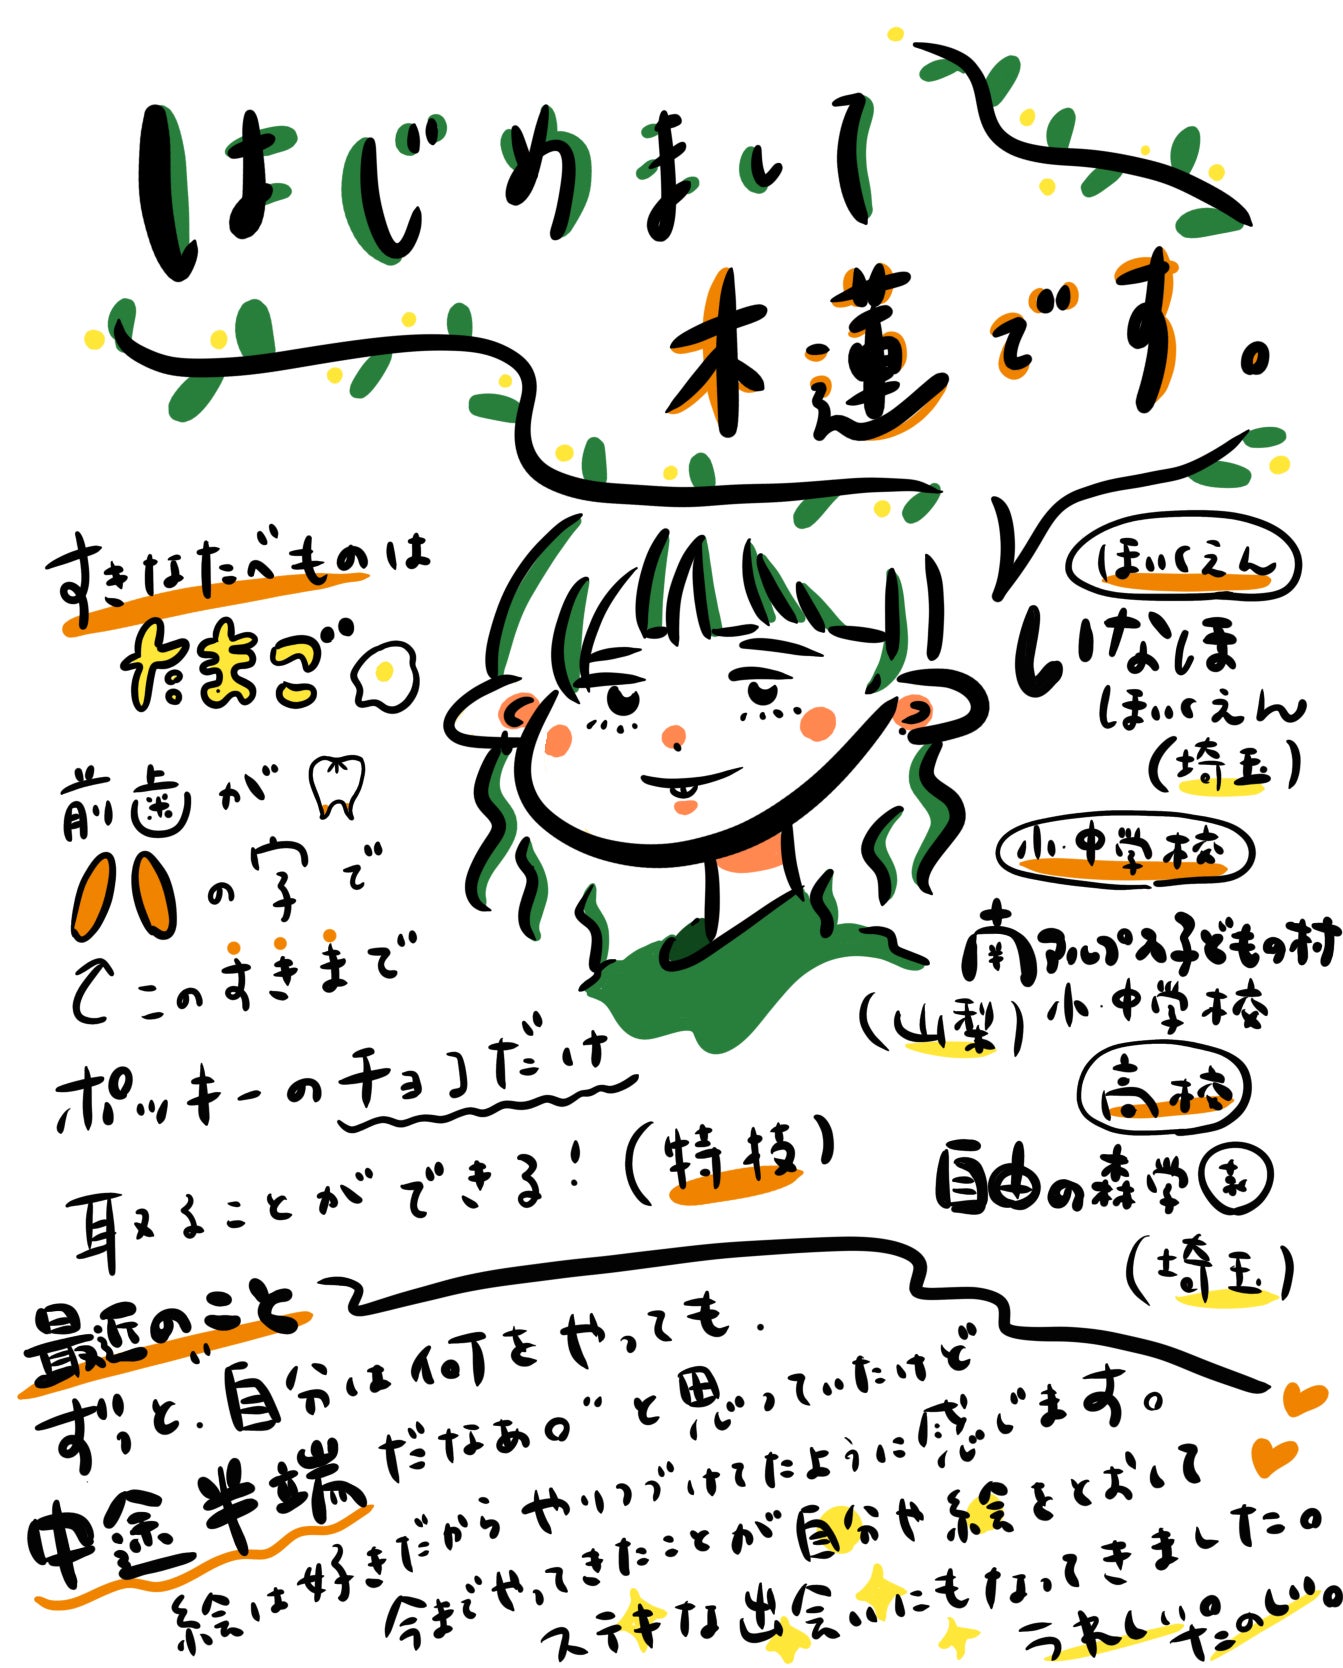 はじめまして
木蓮です。
すきなたべものは
たまご
前歯が
八の字で
このすきまで
ポッキーのチョコだけ
取ることができる!(特技)
ほいくえん
いなほ
ほいくえん
(埼玉)
小・中学校
南アルプス子どもの村
小・中学校
(山梨)
高校
自由の森学園
(埼玉)
最近のこと
ずっと、自分は何をやっても、
中途半端だなあ。"と思っていたけど
絵は好きだからやりつづけてたように感じます。
今までやってきたことが自分や絵をとおして
ステキな出会いにもなってきました。
うれしい。たのしい。